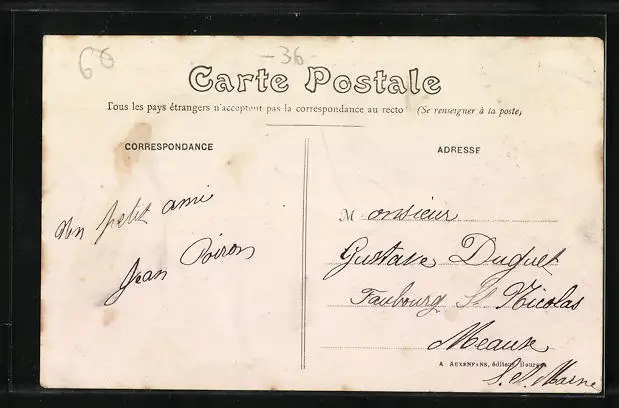 60
-36-
Carte Postale
Tous les pays étrangers n'acceptent pas la correspondance au recto (Se renseigner à la poste)
CORRESPONDANCE
ADRESSE
Un petit ami
Jean Poiron
Monsieur
Gustave Duguet
Faubourg St Nicolas
Meaux
A AUXENFANS, éditeur Bourges
S. et Marne